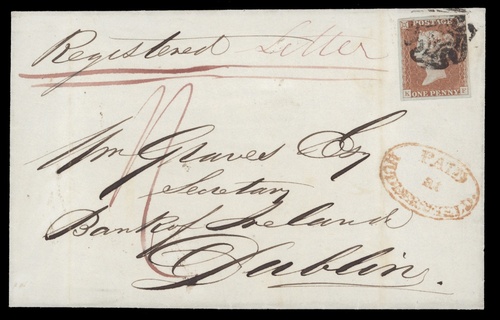 Registered Letter
POSTAGE
ONE PENNY
Wm Graves Esq
Secretary
Bank of Ireland
Dublin.
PAID
AT